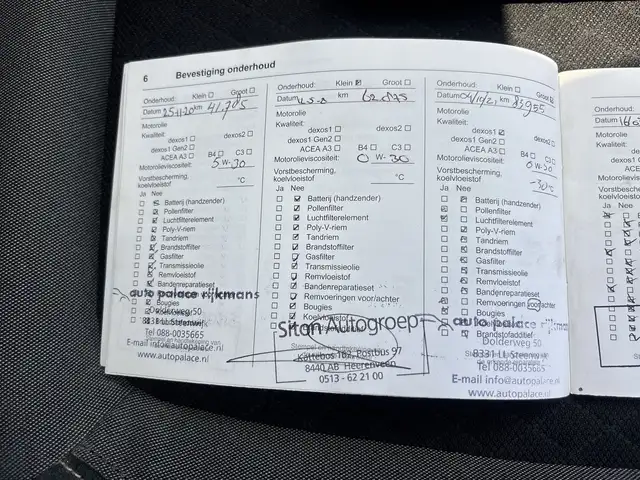 6 Bevestiging onderhoud
Onderhoud: Klein Groot
Datum 25-11-20 km 41.785
Motorolie
Kwaliteit:
dexos1 dexos2
dexos1 Gen2
ACEA A3 B4 C3
Motorolieviscositeit: 5 W-30
Vorstbescherming, koelvloeistof °C
Ja Nee
Batterij (handzender)
Pollenfilter
Luchtfilterelement
Poly-V-riem
Tandriem
Brandstoffilter
Gasfilter
Transmissieolie
Remvloeistof
Bandenreparatieset
auto palace rijkmans
Bougies
Dolderweg 50
Tel 088-0035665
E-mail info@autopalace.nl
www.autopalace.nl
Onderhoud: Klein Groot
Datum km
Motorolie
Kwaliteit:
dexos1 dexos2
dexos1 Gen2
ACEA A3 B4 C3
Motorolieviscositeit: 0 W-30
Vorstbescherming, koelvloeistof °C
Ja Nee
Batterij (handzender)
Pollenfilter
Luchtfilterelement
Poly-V-riem
Tandriem
Brandstoffilter
Gasfilter
Transmissieolie
Remvloeistof
Bandenreparatieset
Remvoeringen voor/achter
Bougies
Koelvloeistof
Siton Autogroep
Kattebos 162, Postbus 97
8440 AB Heerenveen
0513 - 62 21 00
Onderhoud: Klein Groot
Datum km 83955
Motorolie
Kwaliteit:
dexos1 dexos2
dexos1 Gen2
ACEA A3 B4 C3
Motorolieviscositeit: 0 W-30
Vorstbescherming, koelvloeistof -30 °C
Ja Nee
Batterij (handzender)
Pollenfilter
Luchtfilterelement
Poly-V-riem
Tandriem
Brandstoffilter
Gasfilter
Transmissieolie
Remvloeistof
Bandenreparatieset
Remvoeringen voor/achter
Bougies
auto palace
Brandstofadditief
Dolderweg 50
8331 LL Steenwijk
Tel 088-0035665
E-mail info@autopalace.nl
www.autopalace.nl
Onderhoud:
Datum
Motorolie
Kwaliteit:
Motorolieviscosit
Vorstbescherming
koelvloeistof
Ja Nee